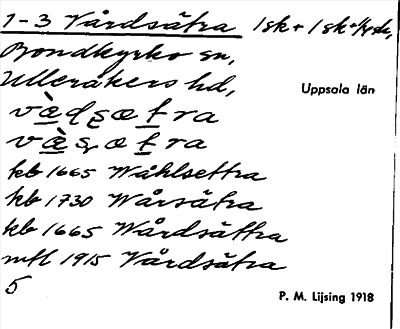 1-3 Vårdsätra 1 sk + 1 sk + 1/4 sk,
Bondkyrko sn,
Ulleråkers hd,
Uppsala län
kb 1665 Wåhlsettra
kb 1730 Wårsätra
kb 1665 Wårdsättra
mtl 1915 Vårdsätra
5
P. M. Lijsing 1918